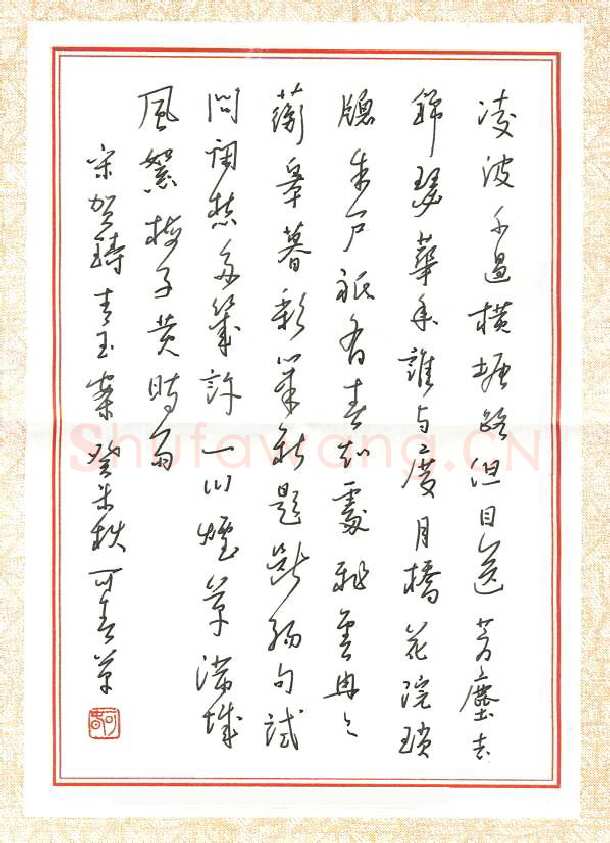 凌波不過橫塘路但目送芳塵去
錦瑟華年誰與度月橋花院瑣
牕朱戶祗有春知處飛雲冉々
蘅皋暮彩筆新題斷腸句試
問閒愁都幾許一川煙草滿城
風絮梅子黃時雨
宋賀鑄青玉案癸未秋可春草
Shufawang.CN